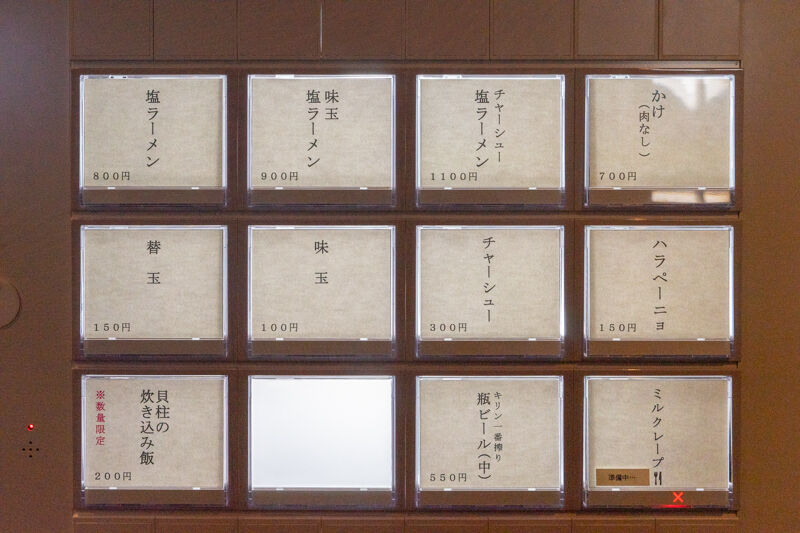 塩ラーメン
800円
味玉
塩ラーメン
900円
チャーシュー
塩ラーメン
1100円
かけ
(肉なし)
700円
替玉
150円
味玉
100円
チャーシュー
300円
ハラペーニョ
150円
貝柱の
炊き込み飯
※数量限定
200円
キリン一番搾り
瓶ビール(中)
550円
ミルクレープ
準備中…